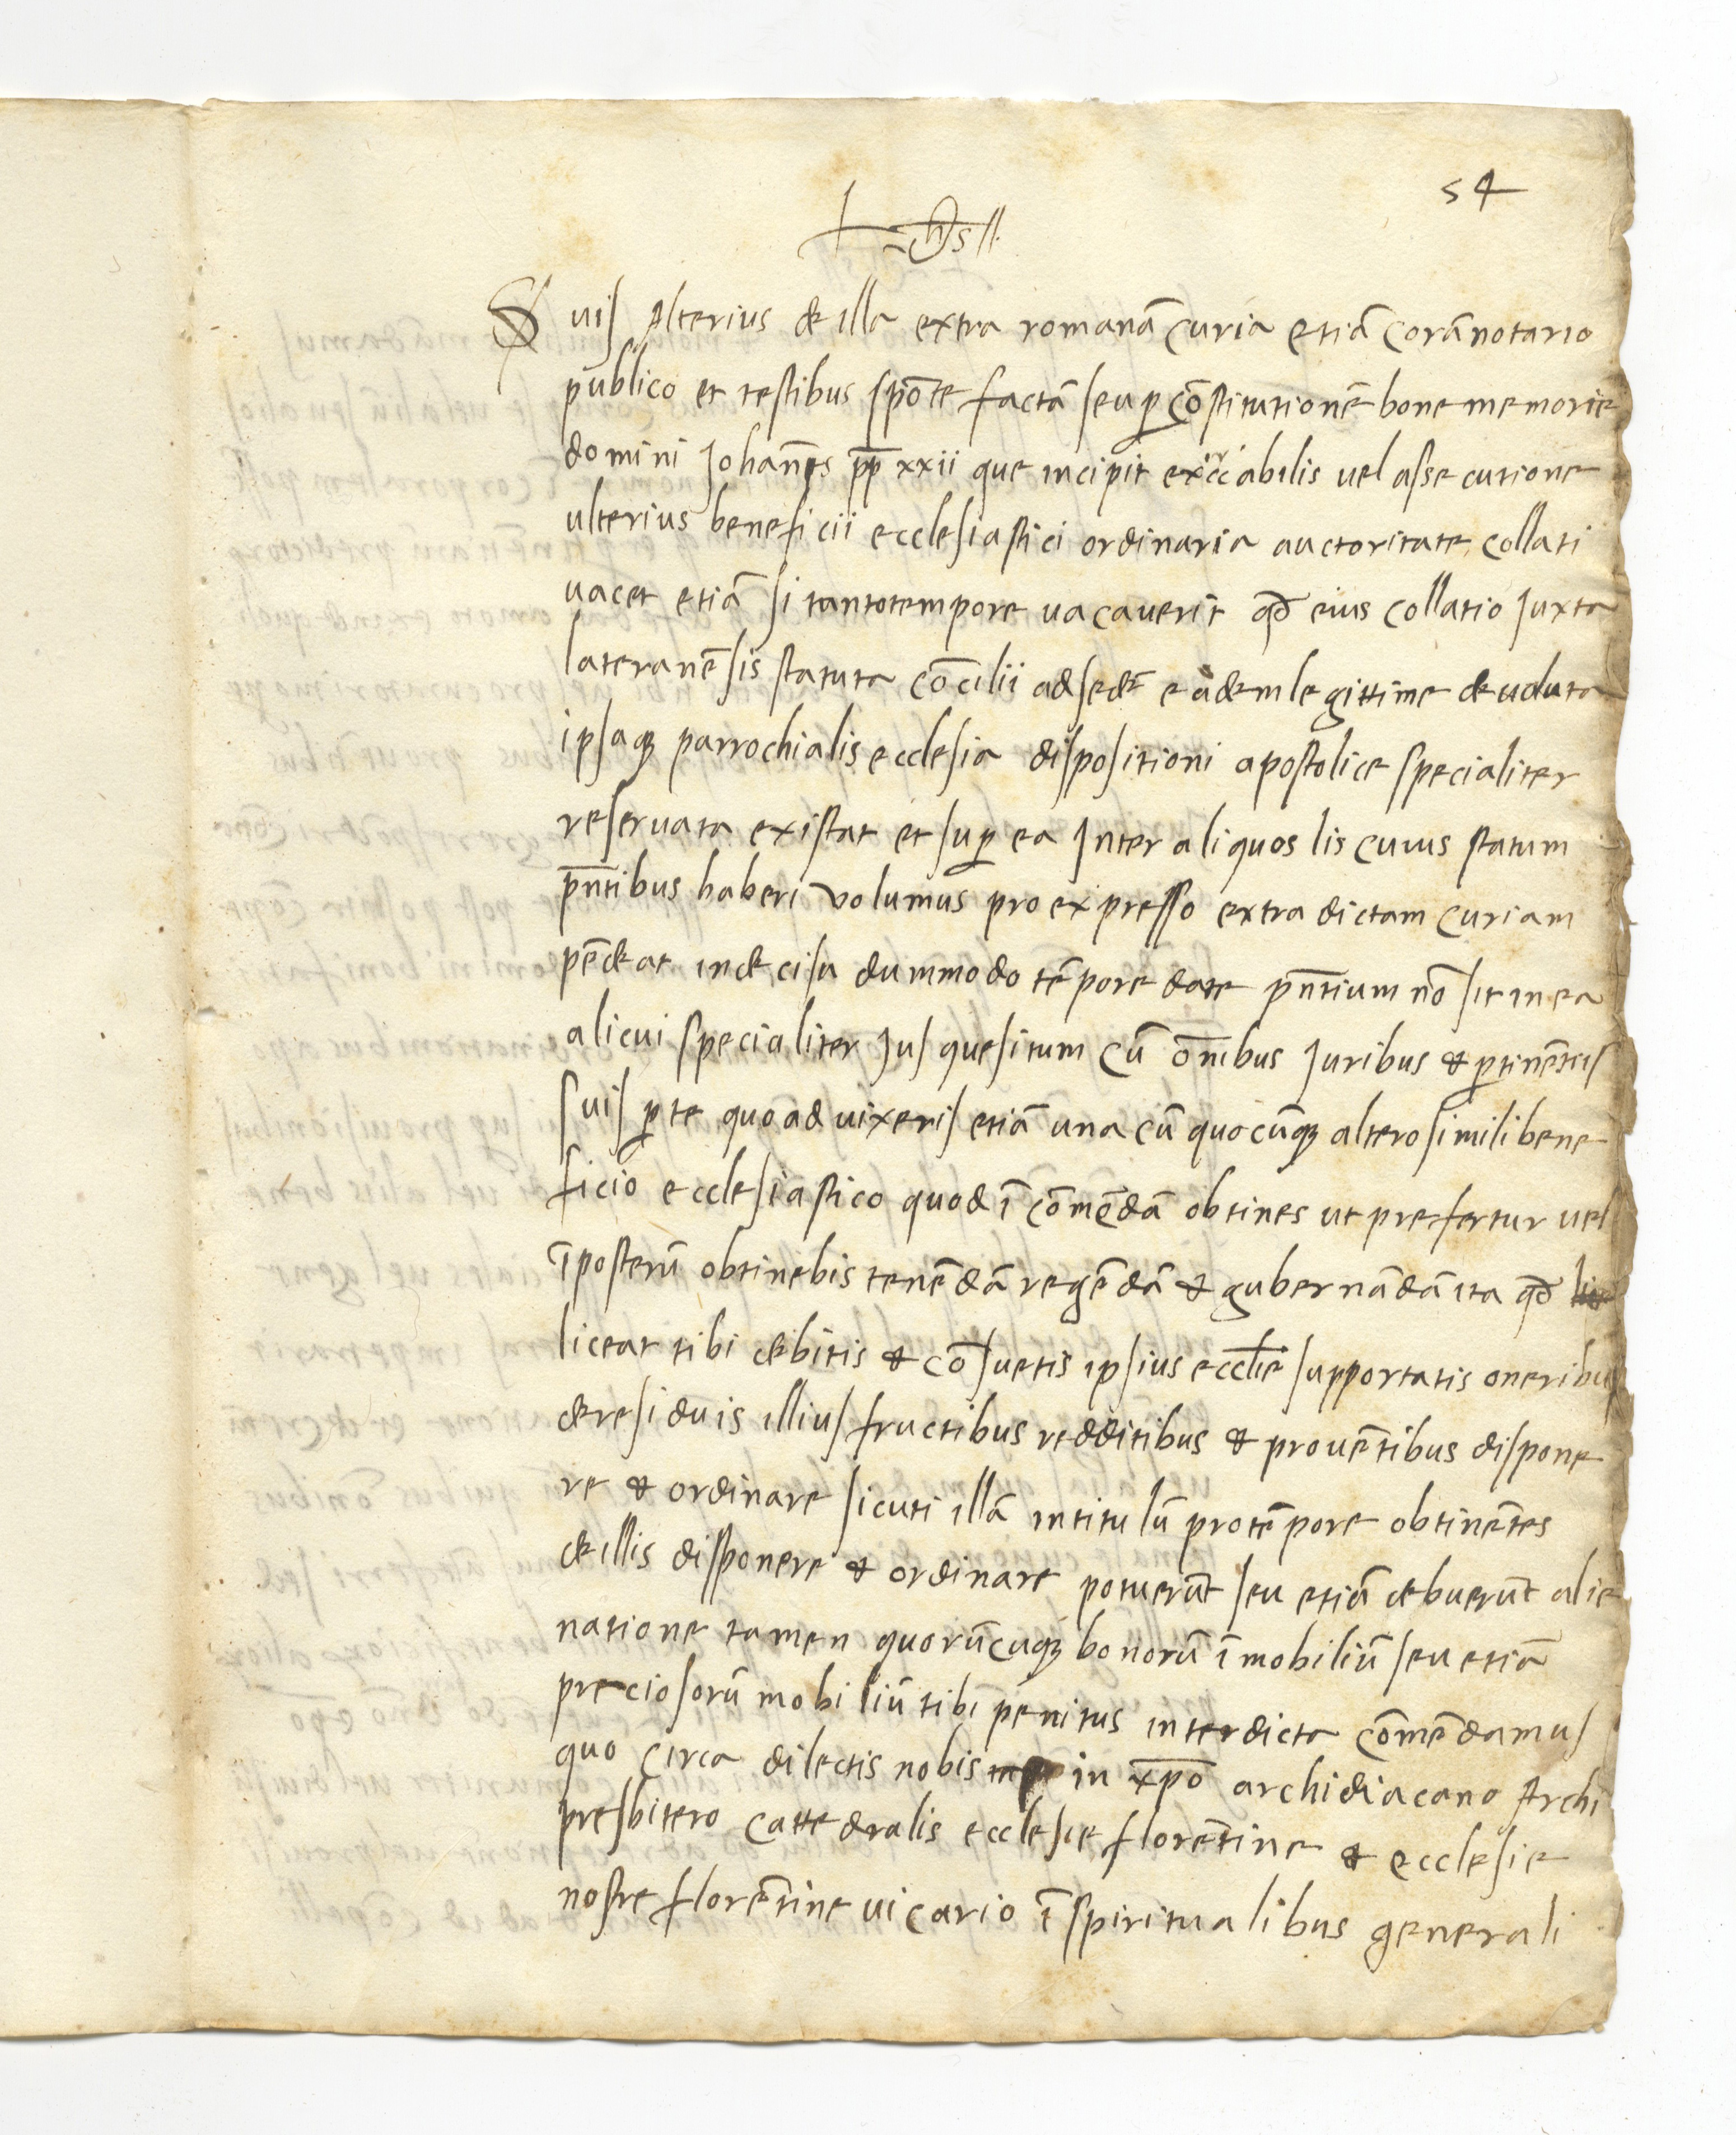 54
yhs
Suis Alterius de illa extra romanā curia etiā corā notario
publico et testibus spōte factā seu ꝑ cōstitutionē bone memorie
domini Johannis pp xxii que incipit execrabilis vel assecutione
ulterius beneficii ecclesiastici ordinaria auctoritate collati
uacet etiā si tanto tempore uacauerit qđ eius collatio Juxta
lateranēsis statuta cōcilii ad sedē eadem legittime deuoluta
ipsaqꝫ parrochialis ecclesia dispositioni apostolice specialiter
reseruata existat et suꝑ ea Inter aliquos lis cuius statum
pn̄tibus haberi volumus pro expresso extra dictam curiam
pēdeat indecisa dummodo tēpore date pn̄tium nō sit in ea
alicui specialiter Jus quesitum cū om̄ibus Juribus & ꝑtinētiis
suis ꝑ te quo ad uixeris etiā una cū quocūqꝫ altero simili bene
ficio ecclesiastico quod ī cōmēdā obtines ut prefertur uel
īposterū obtinebis tenēdā regēdā & gubernādā ita qđ
liceat tibi debitis & cōsuetis ipsius eccl̄ie supportatis oneribus
de residuis illius fructibus redditibus & prouētibus dispone
re & ordinare sicuti illā in titulū pro tēpore obtinētes
de illis disponere & ordinare potuerūt seu etiā debuerūt alie
natione tamen quorūcūqꝫ bonorū īmobiliū seu etiā
preciosorū mobiliū tibi penitus interdicta cōmēdamus
quo circa dilectis nobis in xp̄o archidiacano Archi
presbitero cattedralis ecclesie florētine & ecclesie
nostre florētine uicario ī spiritualibus generali